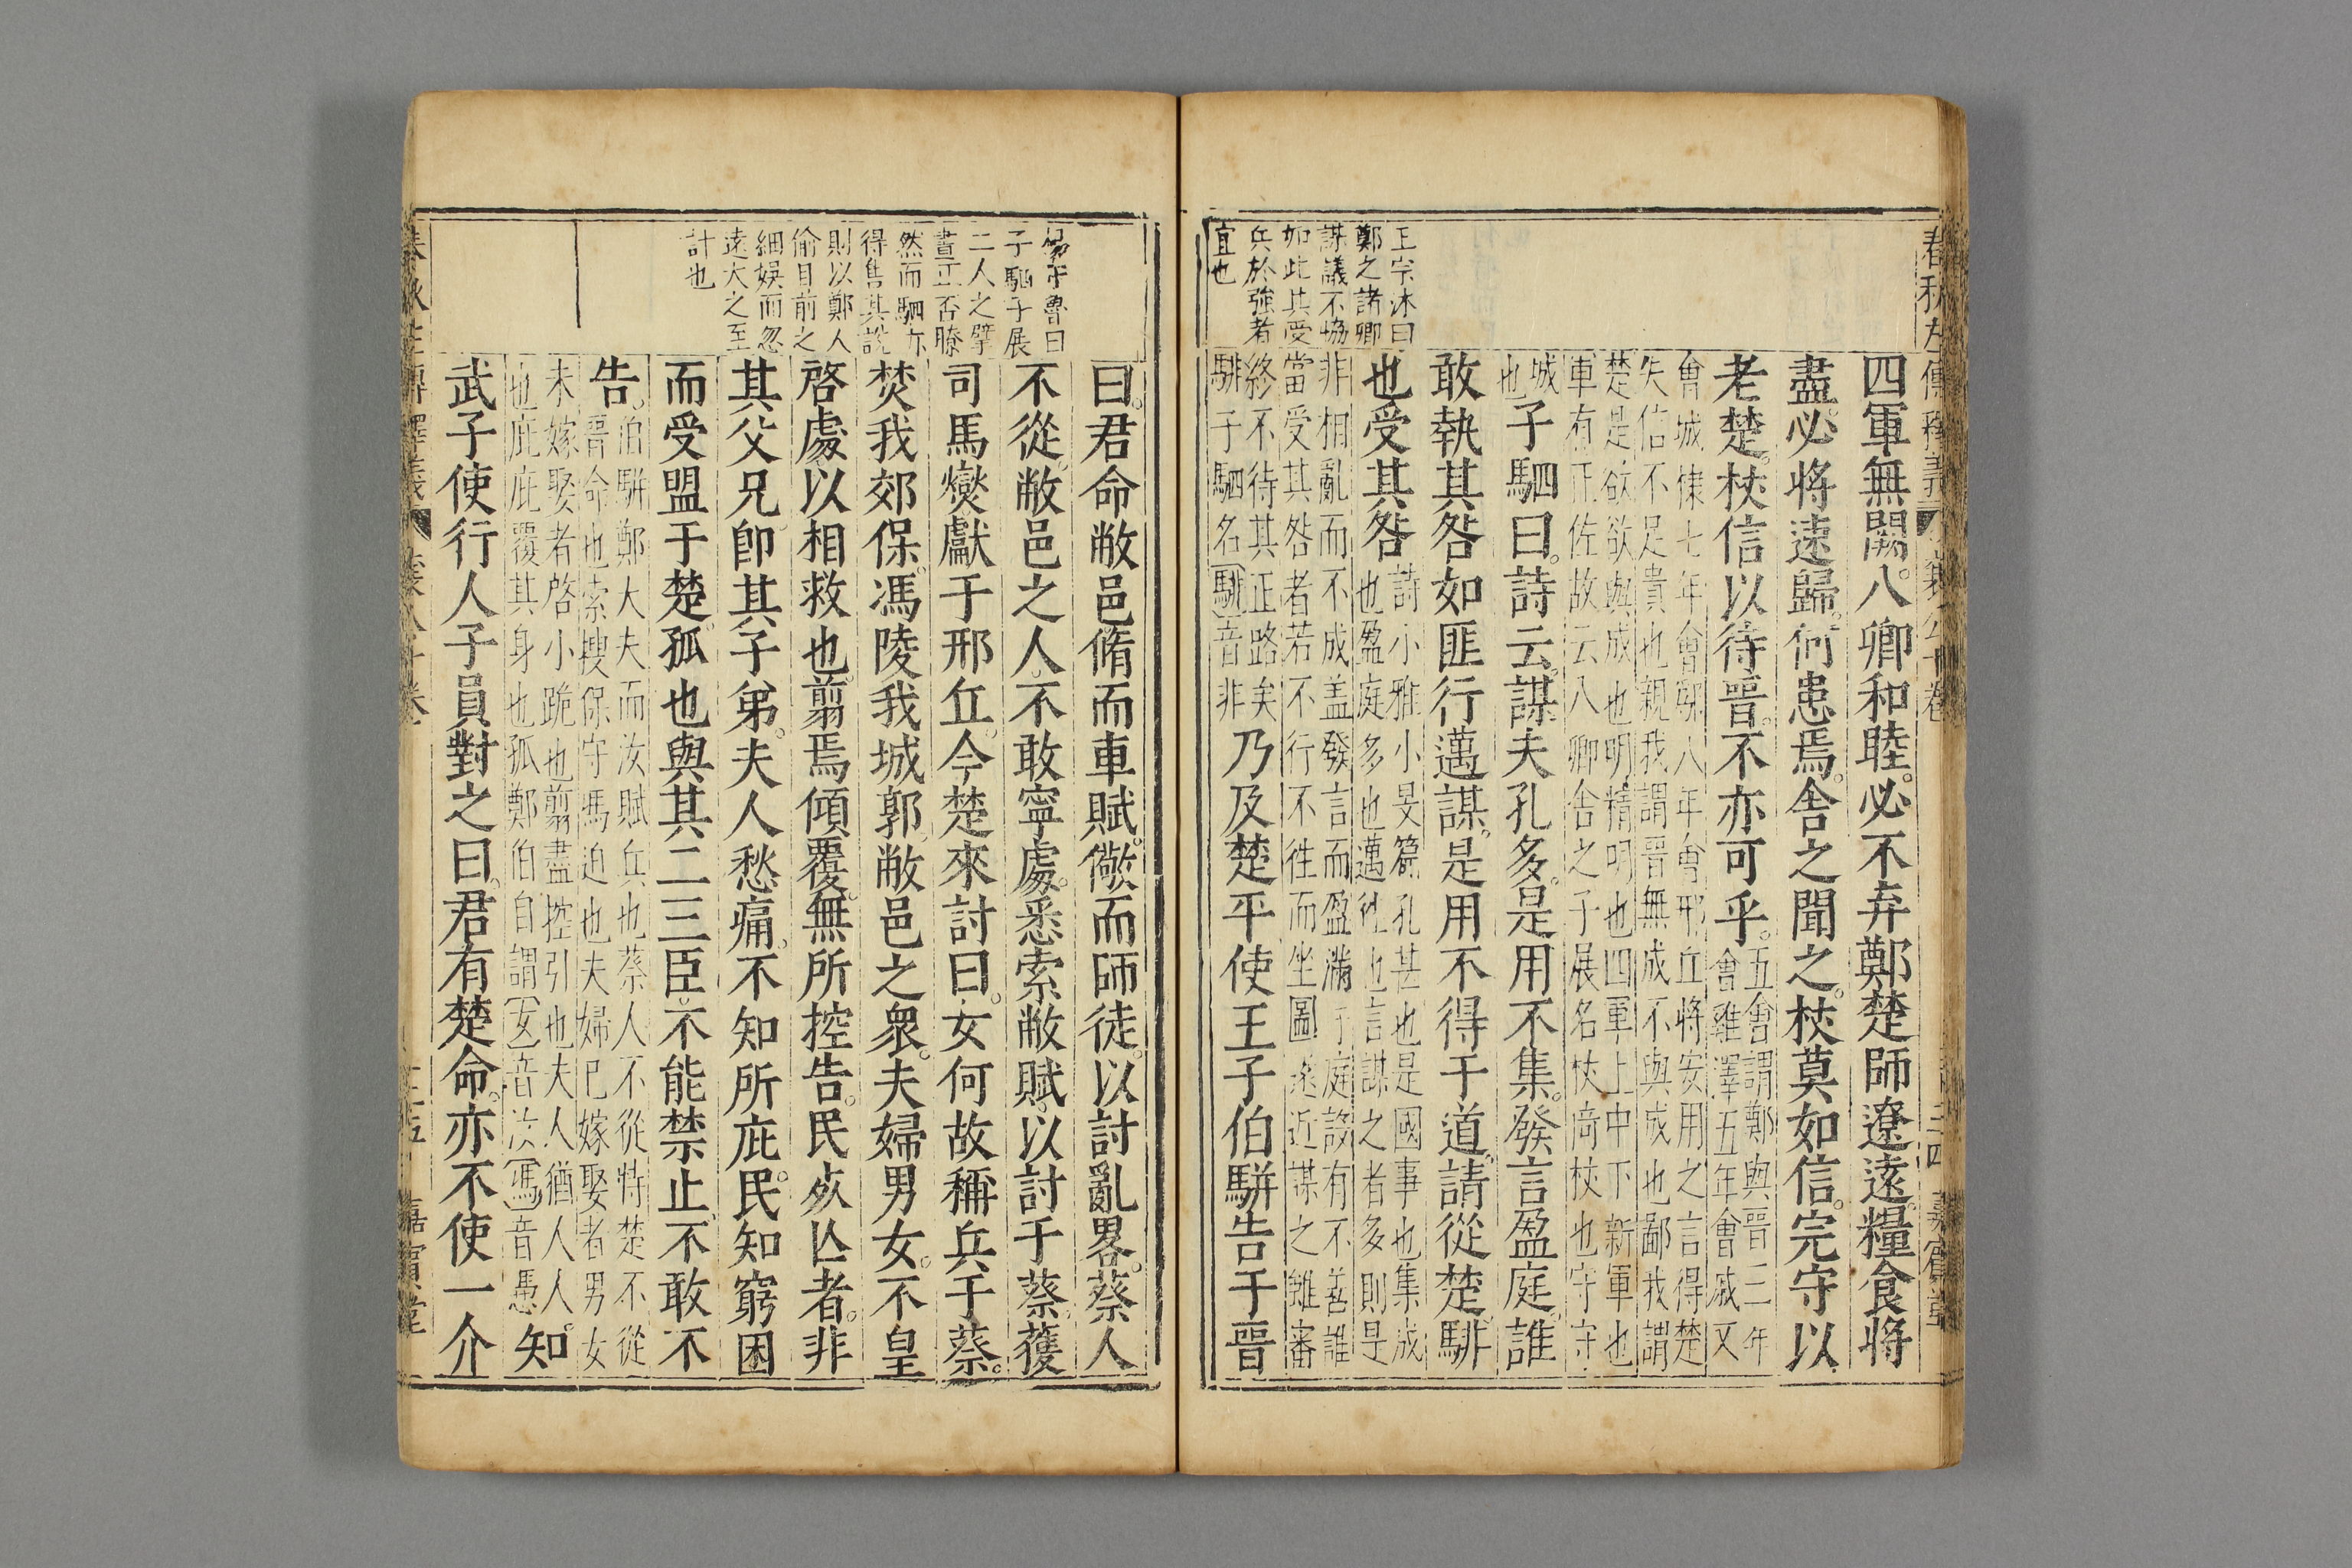 四軍無闕八卿和睦必不弃鄭楚師遼遠糧食將
盡必將速歸何患焉舍之聞之杖莫如信完守以
老楚杖信以待晉不亦可乎
五會謂鄭與晉三年
會雞澤五年會戚又
會城棣七年會鄬八年會邢丘將安用之言得楚
失信不足貴也親我謂晉無成不與成也鄙我謂
楚是欲欲與成也明精明也四軍上中下新軍也
軍有正佐故云八卿舍之子展名杖倚杖也守守
城
也
子駟曰詩云謀夫孔多是用不集發言盈庭誰
敢執其咎如匪行邁謀是用不得于道請從楚騑
也受其咎
詩小雅小旻篇孔甚也是國事也集成
也盈庭多也邁往也言謀之者多則是
非相亂而不成盖發言而盈滿于庭設有不善誰
當受其咎者若不行不徃而坐圖遠近謀之雖審
終不待其正路矣
騑子駟名騑音非
乃及楚平使王子伯駢告于晉
王宗沐曰
鄭之諸卿
謀議不協
如此其受
兵於強者
宜也
曰君命敝邑脩而車賦儆而師徒以討亂畧蔡人
不從敝邑之人不敢寧處悉索敝賦以討于蔡獲
司馬燮獻于邢丘今楚來討曰女何故稱兵于蔡
焚我郊保馮陵我城郭敝邑之衆夫婦男女不皇
啓處以相救也翦焉傾覆無所控告民死亾者非
其父兄卽其子弟夫人愁痛不知所庇民知窮困
而受盟于楚孤也與其二三臣不能禁止不敢不
告
伯駢鄭大夫而汝賦兵也蔡人不從恃楚不從
晉命也索搜保守馮迫也夫婦已嫁娶者男女
未嫁娶者啓小跪也翦盡控引也夫人猶人人
也庇庇覆其身也孤鄭伯自謂女音汝馮音憑
知
武子使行人子員對之曰君有楚命亦不使一介
子駟子展
二人之擘
畫正否瞭
然而駟亦
得售其說
則以鄭人
偷目前之
細娛而忽
遠大之至
計也
三四
嘉賓堂
三五
嘉賓堂